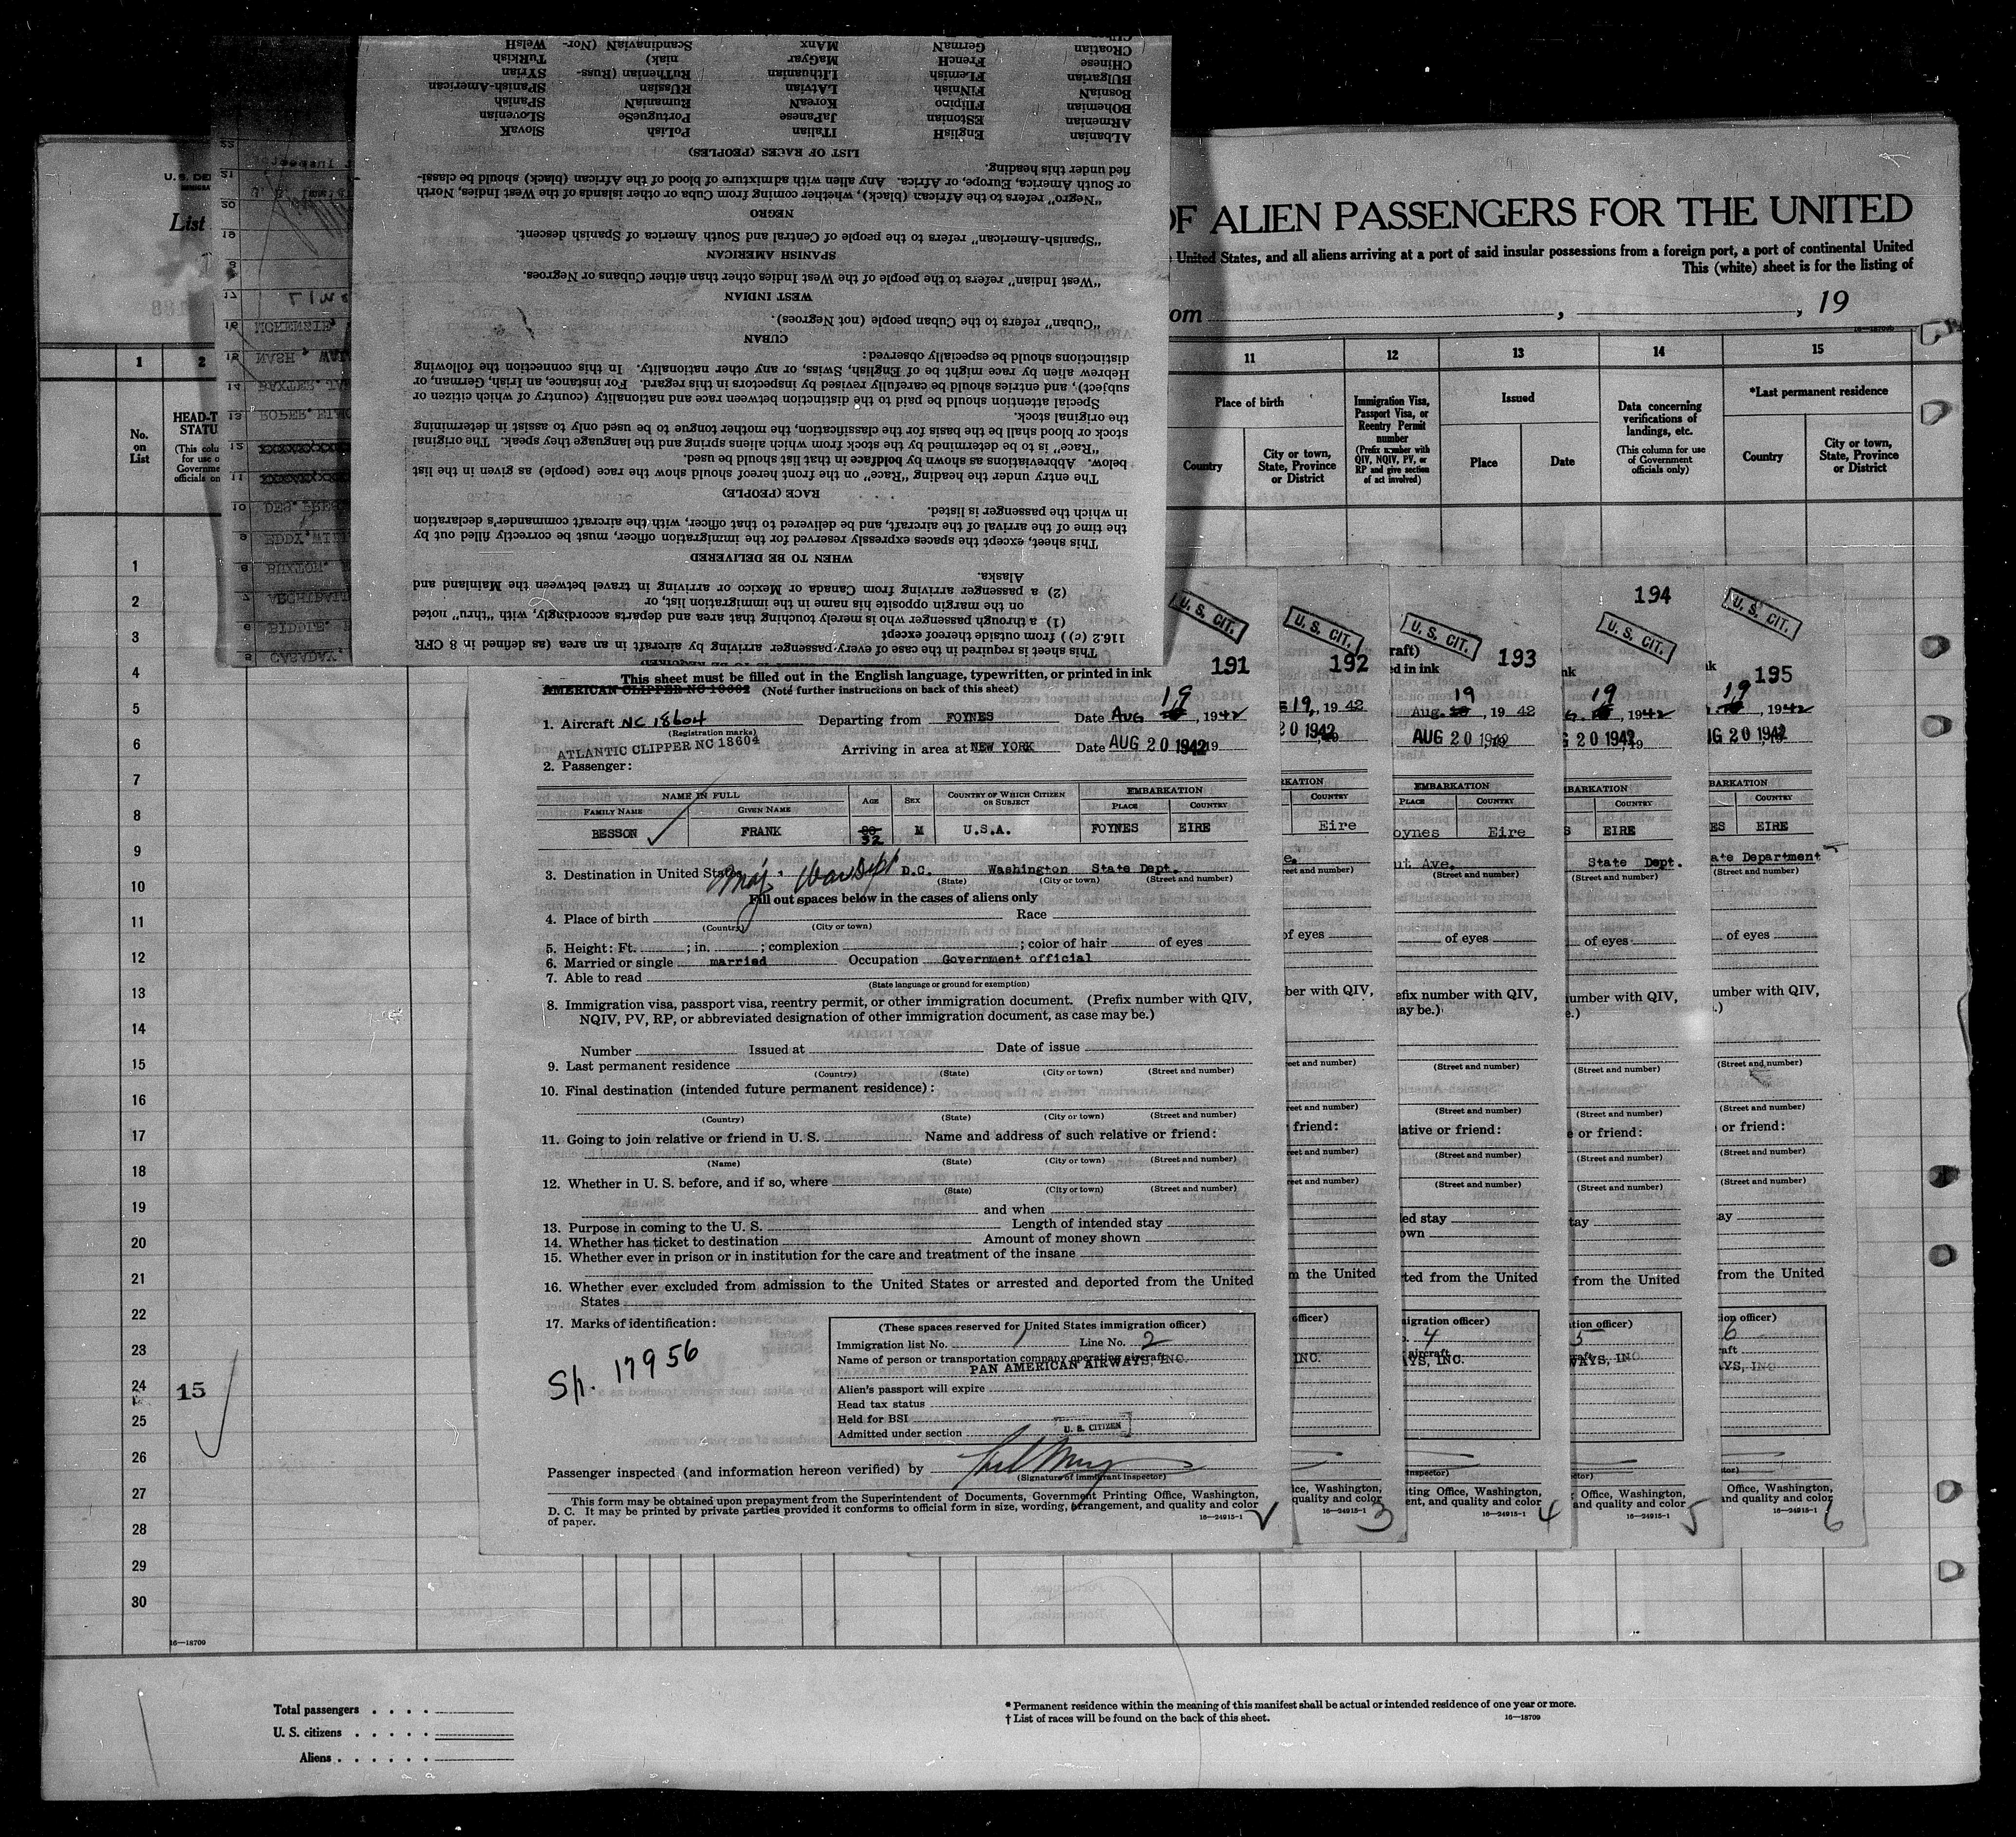 WelsH
TurKish
SYrian
SPanish-American
SPanish
SLOvenian
SlovaK
Scandinavian (Nor-
niak)
RuTHenian (Russ-
RUssian
RumaniaN
PortugueSe
PoLish
MAnx
MaGyar
LIthuanian
LAtvian
KoreaN
JaPanese
ITalian
GermaN
FrencH
FLemish
FiNnish
FIlipino
EStonian
EnglisH
CRoatian
CHinese
BUlgarian
BosniaN
BOhemian
ARmenian
ALbanian
LIST OF RACES (PEOPLES)
fied under this heading.
or South America, Europe, or Africa. Any alien with admixture of blood of the African (black) should be classi-
"Negro" refers to the African (black), whether coming from Cuba or other islands of the West Indies, North
NEGRO
"Spanish-American" refers to the people of Central and South America of Spanish descent.
SPANISH AMERICAN
"West Indian" refers to the people of the West Indies other than either Cubans or Negroes.
WEST INDIAN
"Cuban" refers to the Cuban people (not Negroes).
CUBAN
distinctions should be especially observed:
Hebrew alien by race might be of English, Swiss, or any other nationality. In this connection the following
subject), and entries should be carefully revised by inspectors in this regard. For instance, an Irish, German, or
Special attention should be paid to the distinction between race and nationality (country of which citizen or
the original stock.
stock or blood shall be the basis for the classification, the mother tongue to be used only to assist in determining
"Race" is to be determined by the stock from which aliens spring and the language they speak. The original
below. Abbreviations as shown by boldface in that list should be used.
The entry under the heading "Race" on the front hereof should show the race (people) as given in the list
RACE (PEOPLE)
in which the passenger is listed.
the time of the arrival of the aircraft, and be delivered to that officer, with the aircraft commander's declaration
This sheet, except the spaces expressly reserved for the immigration officer, must be correctly filled out by
WHEN TO BE DELIVERED
Alaska.
(2) a passenger arriving from Canada or Mexico or arriving in travel between the Mainland and
on the margin opposite his name in the immigration list, or
(1) a through passenger who is merely touching that area and departs accordingly, with "thru" noted
116.2 (c)) from outside thereof except
This sheet is required in the case of every passenger arriving by aircraft in an area (as defined in 8 CFR
List
MCKENSIE,
NASH,
BAXTER,
ROPER,
EDDY,
BUXTON,
BIDDLE,
CASADAY,
OF ALIEN PASSENGERS FOR THE UNITED
United States, and all aliens arriving at a port of said insular possessions from a foreign port, a port of continental United
This (white) sheet is for the listing of
om , , 19
1 2 11 12 13 14 15
No. on List
Place of birth
Country
City or town, State, Province or District
Immigration Visa, Passport Visa, or Reentry Permit number
(Prefix number with QIV, NQIV, PV, or RP and give section of act involved)
Issued
Place
Date
Data concerning verifications of landings, etc.
(This column for use of Government officials only)
*Last permanent residence
Country
City or town, State, Province or District
1
2
3
4
5
6
7
8
9
10
11
12
13
14
15
16
17
18
19
20
21
22
23
24
25
26
27
28
29
30
15
16—18709
U. S. CIT.
191
This sheet must be filled out in the English language, typewritten, or printed in ink
AMERICAN CLIPPER NC 18602 (Note further instructions on back of this sheet)
1. Aircraft NC 18604 Departing from FOYNES Date Aug 19, 1942
(Registration marks)
ATLANTIC CLIPPER NC 18604 Arriving in area at NEW YORK Date AUG 20 1942 19
2. Passenger:
NAME IN FULL AGE SEX COUNTRY OF WHICH CITIZEN OR SUBJECT EMBARKATION
FAMILY NAME GIVEN NAME PLACE COUNTRY
BESSON FRANK 32 M U.S.A. FOYNES EIRE
3. Destination in United States Maj. War Dept D.C. Washington State Dept.
(State) (City or town) (Street and number)
Fill out spaces below in the cases of aliens only
4. Place of birth Race
(Country) (City or town)
5. Height: Ft. ; in. ; complexion ; color of hair of eyes
6. Married or single married Occupation Government official
7. Able to read
(State language or ground for exemption)
8. Immigration visa, passport visa, reentry permit, or other immigration document. (Prefix number with QIV,
NQIV, PV, RP, or abbreviated designation of other immigration document, as case may be.)
Number Issued at Date of issue
9. Last permanent residence
(Country) (State) (City or town) (Street and number)
10. Final destination (intended future permanent residence):
(Country) (State) (City or town) (Street and number)
11. Going to join relative or friend in U. S. Name and address of such relative or friend:
(Name) (State) (City or town) (Street and number)
12. Whether in U. S. before, and if so, where
(State) (City or town) (Street and number)
and when
13. Purpose in coming to the U. S. Length of intended stay
14. Whether has ticket to destination Amount of money shown
15. Whether ever in prison or in institution for the care and treatment of the insane
16. Whether ever excluded from admission to the United States or arrested and deported from the United
States
17. Marks of identification:
Sp. 17956
(These spaces reserved for United States immigration officer)
Immigration list No. 1 Line No. 2
Name of person or transportation company operating aircraft
PAN AMERICAN AIRWAYS, INC.
Alien's passport will expire
Head tax status
Held for BSI
Admitted under section U. S. CITIZEN
Passenger inspected (and information hereon verified) by
(Signature of immigrant inspector)
This form may be obtained upon prepayment from the Superintendent of Documents, Government Printing Office, Washington,
D. C. It may be printed by private parties provided it conforms to official form in size, wording, arrangement, and quality and color
of paper. 16—24915-1
U. S. CIT.
192
19, 1942
20 1942
COUNTRY
Eire
3
U. S. CIT.
193
Aug. 19 1942
AUG 20 1942
EMBARKATION
PLACE COUNTRY
oynes Eire
Ave.
4
194
U. S. CIT.
19 1942
20 1942
COUNTRY
EIRE
State Dept.
5
U. S. CIT.
195
19 1942
20 1942
COUNTRY
EIRE
ate Department
6
Total passengers
U. S. citizens
Aliens
* Permanent residence within the meaning of this manifest shall be actual or intended residence of one year or more.
† List of races will be found on the back of this sheet. 16—18709